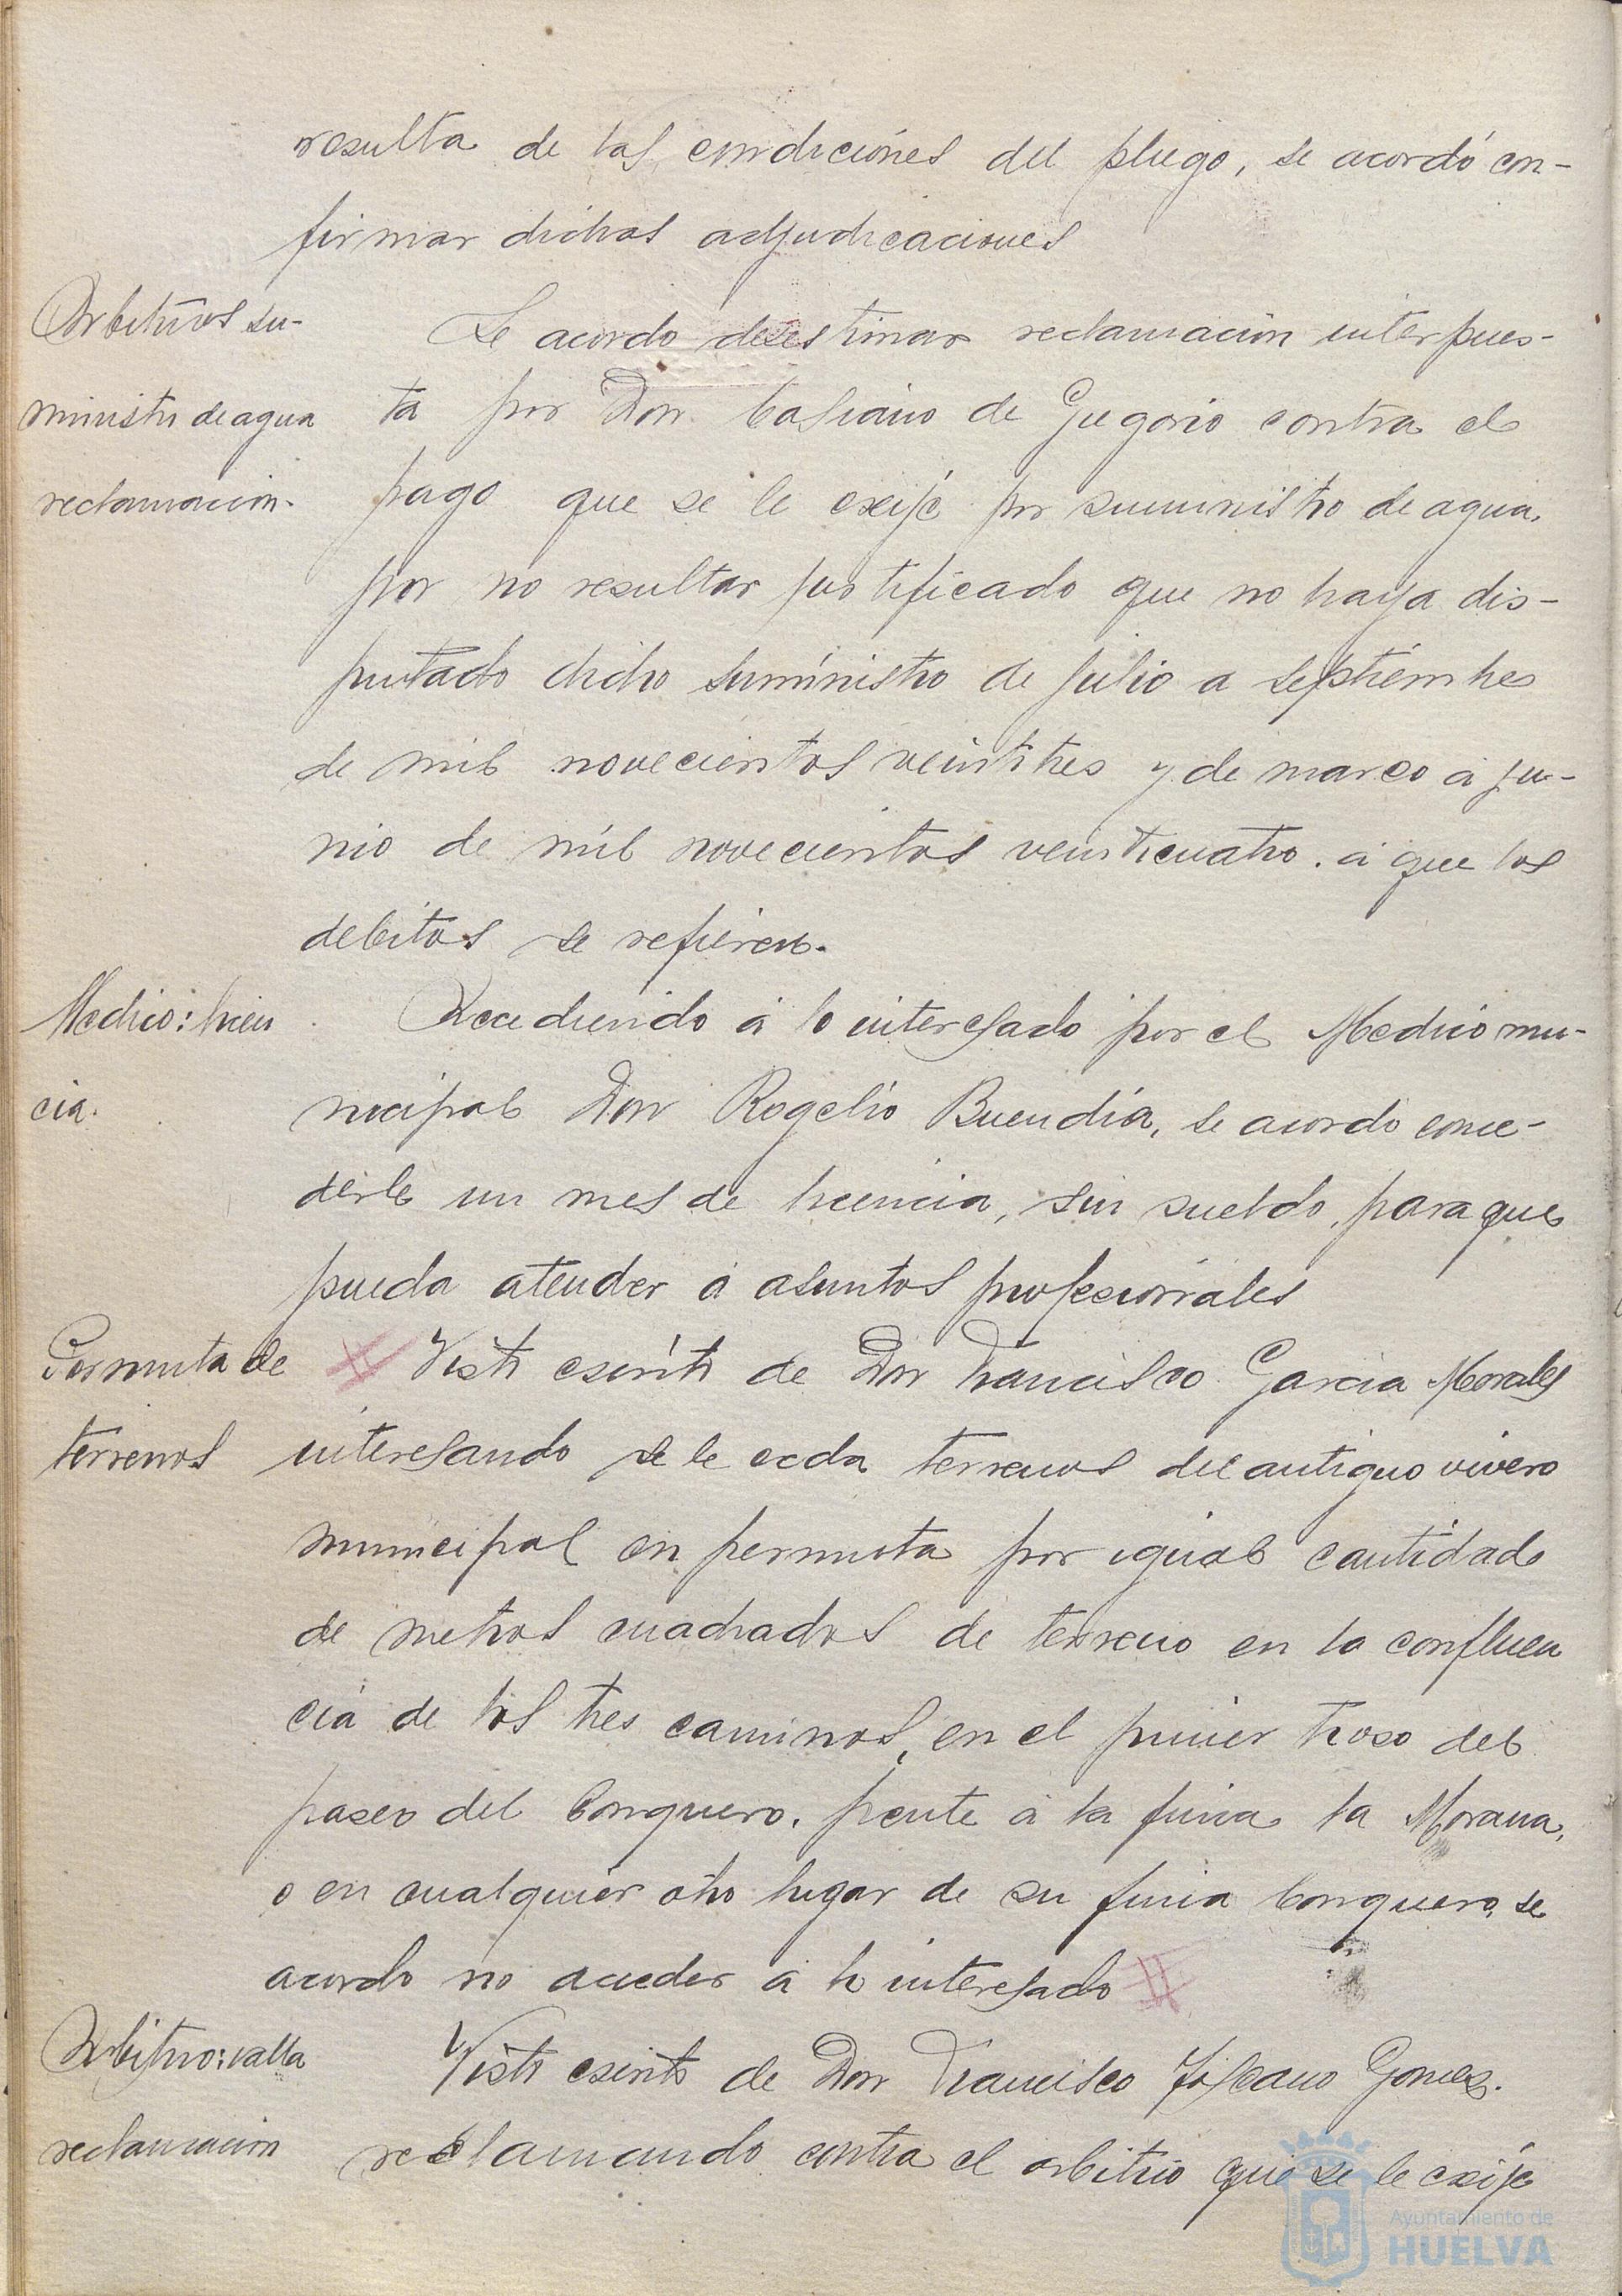 resulta de las condiciones del pliego, se acordó con-
firmar dichas adjudicaciones
Arbitrios su-
ministro de agua
reclamacion.
Se acordo desestimar reclamación interpues-
ta por Don Casiano de Gregorio contra el
pago que se le exije por suministro de agua,
por no resultar justificado que no haya dis-
frutado dicho suministro de julio a septiembre
de mil novecientos veintitres y de marzo á ju-
nio de mil novecientos veinticuatro. á que los
debitos se refieren.
Medico: licen
cia.
Accediendo á lo interesado por el Medico mu-
nicipal Don Rogelio Buendía, se acordo conce-
derle un mes de licencia, sin sueldo, para que
pueda atender á asuntos profesionales
Permuta de
terrenos
Visto escrito de Don Francisco Garcia Morales
interesando se le ceda terrenos del antiguo vivero
municipal en permuta por igual cantidad
de metros cuadrados de terreno en la confluen
cia de los tres caminos, en el primer trozo del
paseo del Conquero, frente á la finca la Morana,
o en cualquier otro lugar de su finca Conquero, se
acordo no acceder á lo interesado
Arbitrio: valla
reclamacion
Visto escrito de Don Francisco Gomez.
reclamando contra el arbitrio que se le exije
Ayuntamiento de
HUELVA